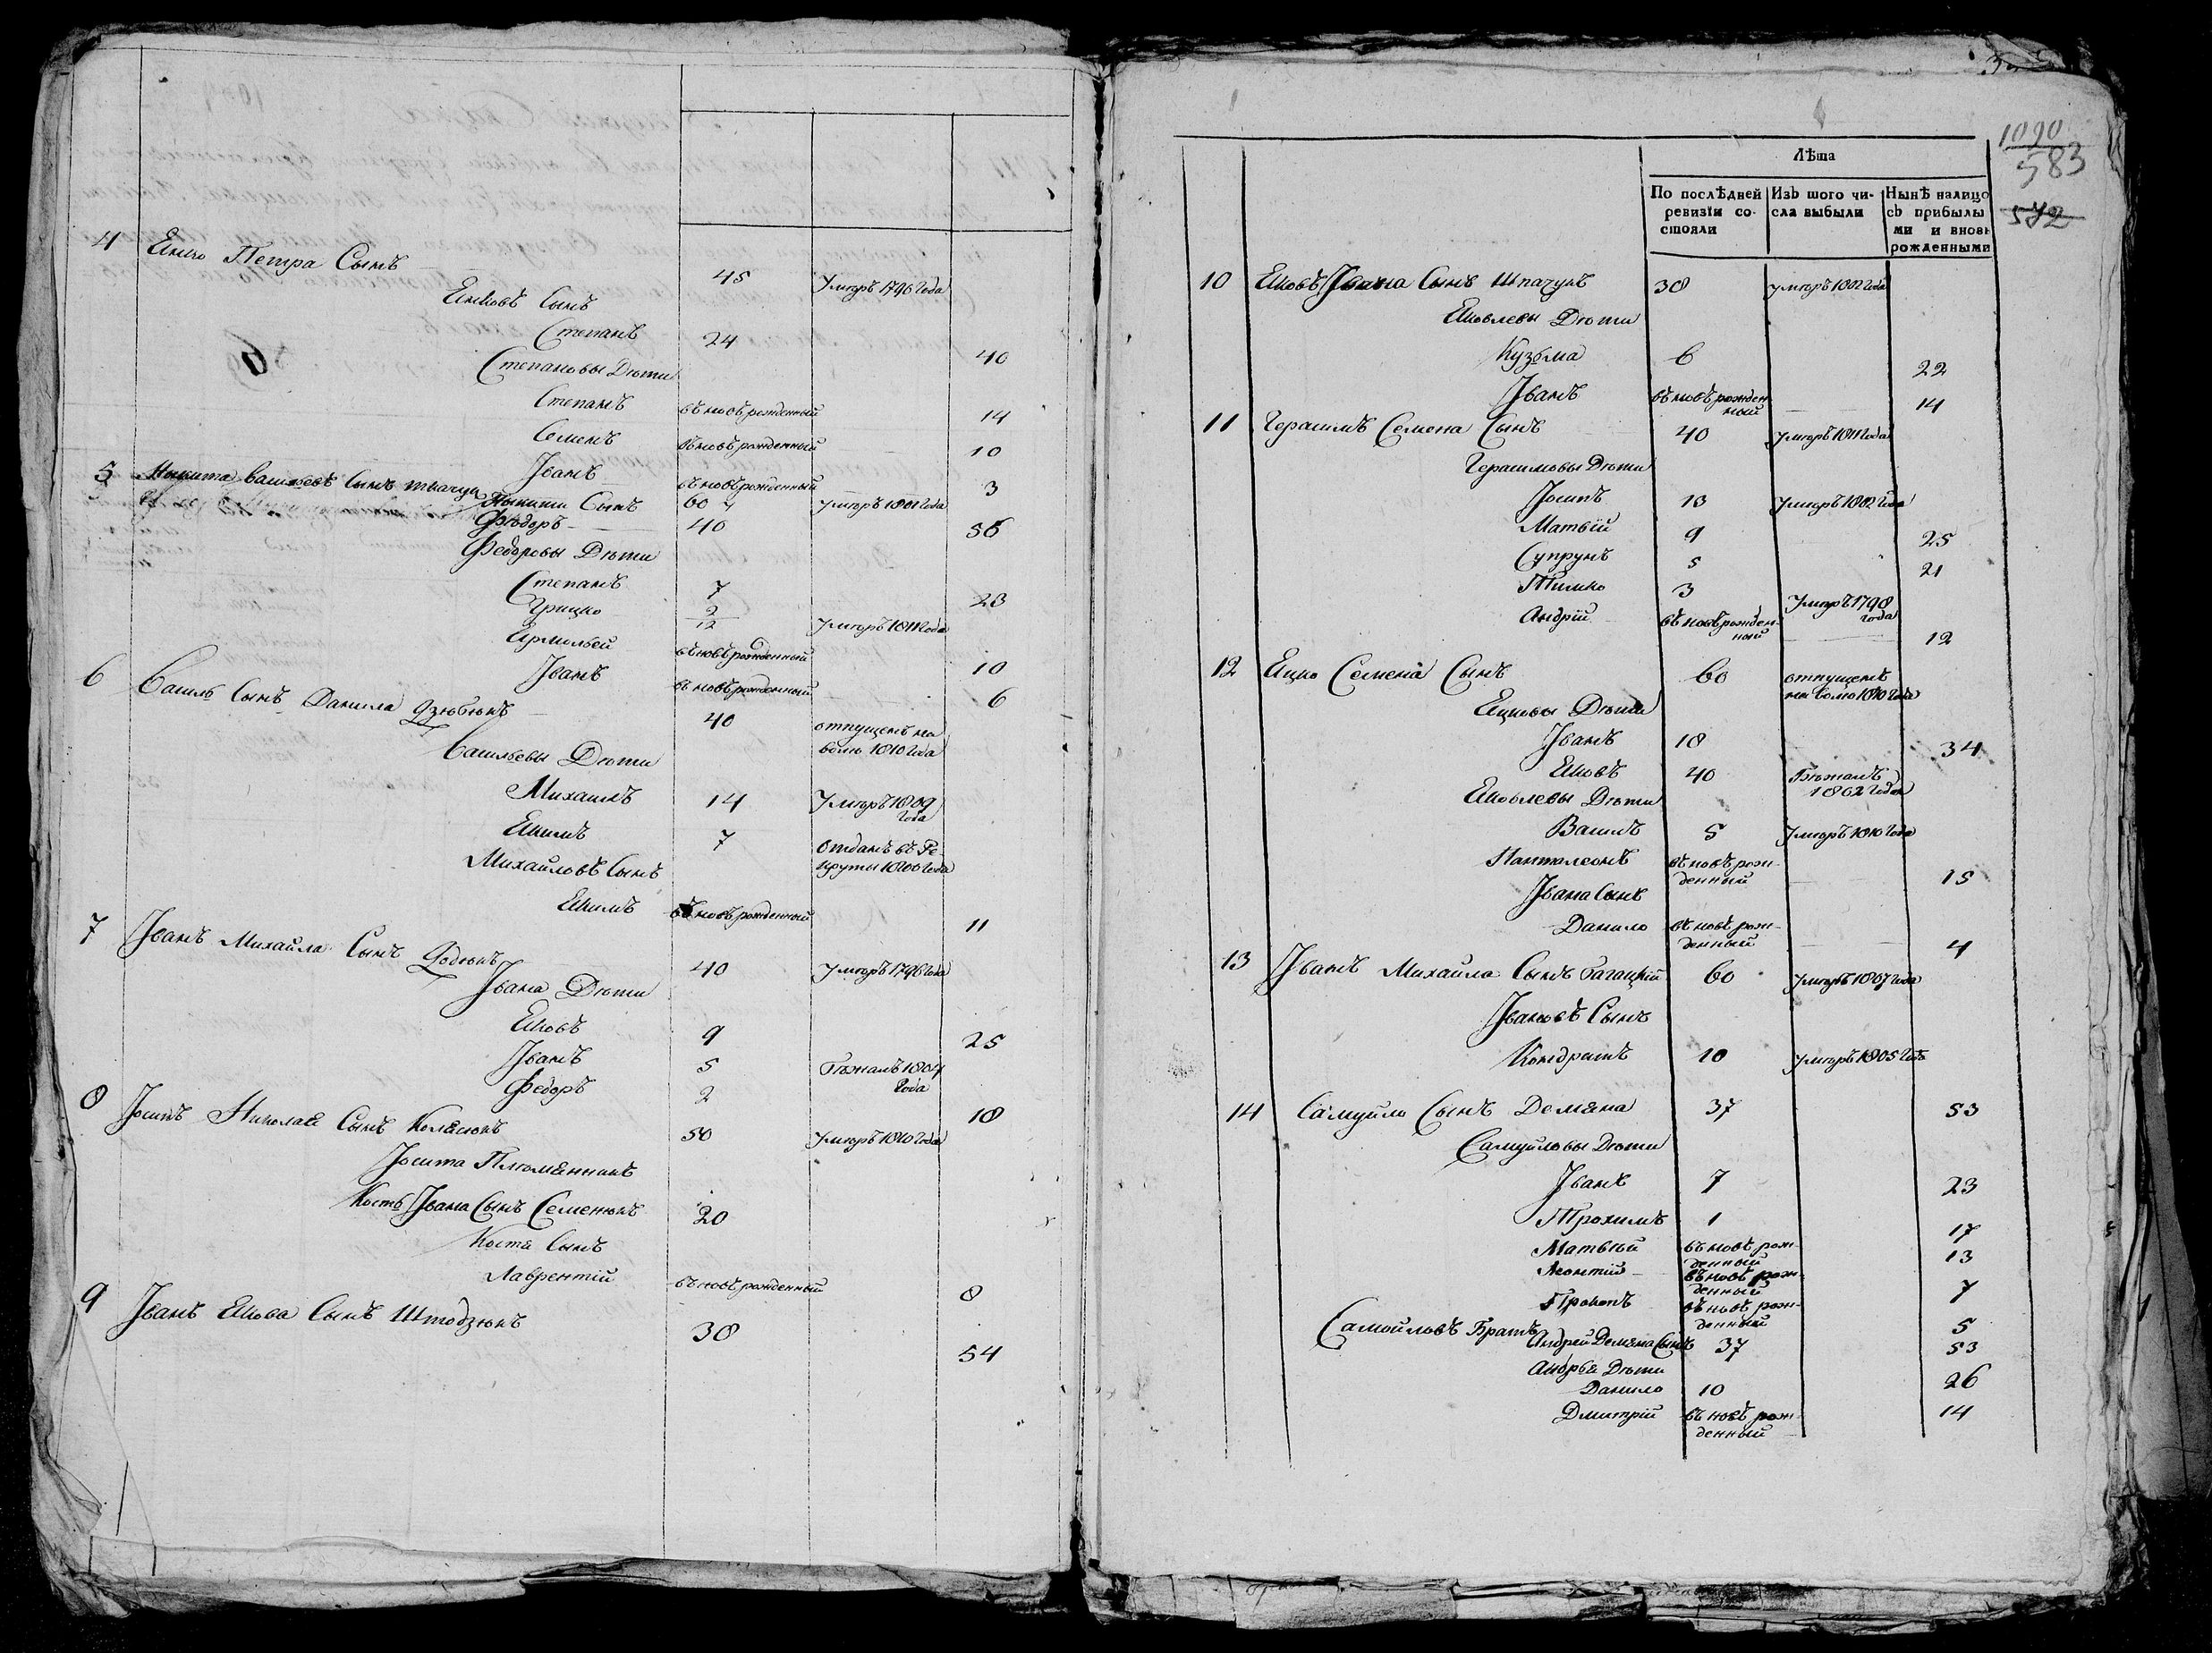 4 Енко Петра Сынъ 45 Умеръ 1796 года
Енковъ Сынъ
Степанъ 24 40
Степановы Дѣти
Степанъ въновѣ рожденный 14
Семенъ въновѣ рожденный 10
Іванъ въновѣ рожденный 3
5 Никита Васильевъ Сынъ 60 Умеръ 1801 года
Никиты Сынъ
Фѣдоръ 40 56
Федоровы Дѣти
Степанъ 7 23
Грицко 2 Умеръ 1811 года
12
Ермолей въновѣ рожденный 10
Іванъ въновѣ рожденный 6
6 Василь Сынъ Данила Дзюбюкъ 40 отпущенъ на
волю 1810 года
Васильевы Дѣти
Михаилъ 14 Умеръ 1809
года
Екимъ 7 Отданъ въ Ре-
круты 1806 года
Михайловъ Сынъ
Екимъ въновѣ рожденный 11
7 Іванъ Михайла Сынъ 40 Умеръ 1796 года
Івана Дѣти
Яковъ 9 25
Іванъ 5 Бѣжалъ 1804
года
Федоръ 2 18
8 Іосипъ Николая Сынъ 50 Умеръ 1810 года
Іосипа Племянникъ
Кость Івана Сынъ Семенюкъ 20
Костя Сынъ
Лаврентій въновѣ рожденный 8
9 Іванъ Якова Сынъ Штодзюкъ 38 54
1090
583
572
Лѣта
По послѣдней ревизіи состояли
Изъ того числа выбыли
Нынѣ налицо съ прибылыми и вновь рожденными
10 Яковъ Івана Сынъ Шпачукъ 38 умеръ 1802 года
Яковлевы Дѣти
Кузьма 6 22
Іванъ въновѣ рожден-
ный 14
11 Герасимъ Семена Сынъ 40 Умеръ 1811 года
Герасимовы Дѣти
Іосипъ 13 Умеръ 1802 года
Матвій 9 25
Супрунъ 5 21
Тимко 3 Умеръ 1798
года
Андрій въновѣ рожден-
ный 12
12 Яцко Семена Сынъ 60 отпущенъ
на волю 1810 года
Яцковы Дѣти
Іванъ 18 34
Яковъ 40 Бѣжалъ
1802 года
Яковлевы Дѣти
Василь 5 Умеръ 1810 года
Панталеонъ въновѣ рож-
денный 15
Івана Сынъ
Данило въновѣ рож-
денный 4
13 Іванъ Михайла Сынъ Багацкій 60 Умеръ 1807 года
Івановъ Сынъ
Кондратъ 10 Умеръ 1805 года
14 Самуйло Сынъ Демяна 37 53
Самуйловы Дѣти
Іванъ 7 23
Трохимъ 1 17
Матвѣй въновѣ рож-
денный 13
Леонтій въновѣ рож-
денный 7
Прокопъ въновѣ рож-
денный 5
Самойловъ Братъ
Андрей Демяна Сынъ 37 53
Андрея Дѣти
Данило 10 26
Дмитрій въновѣ рож-
денный 14